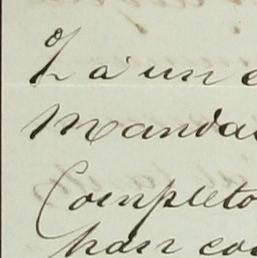 á un
Manda
Completo
han co